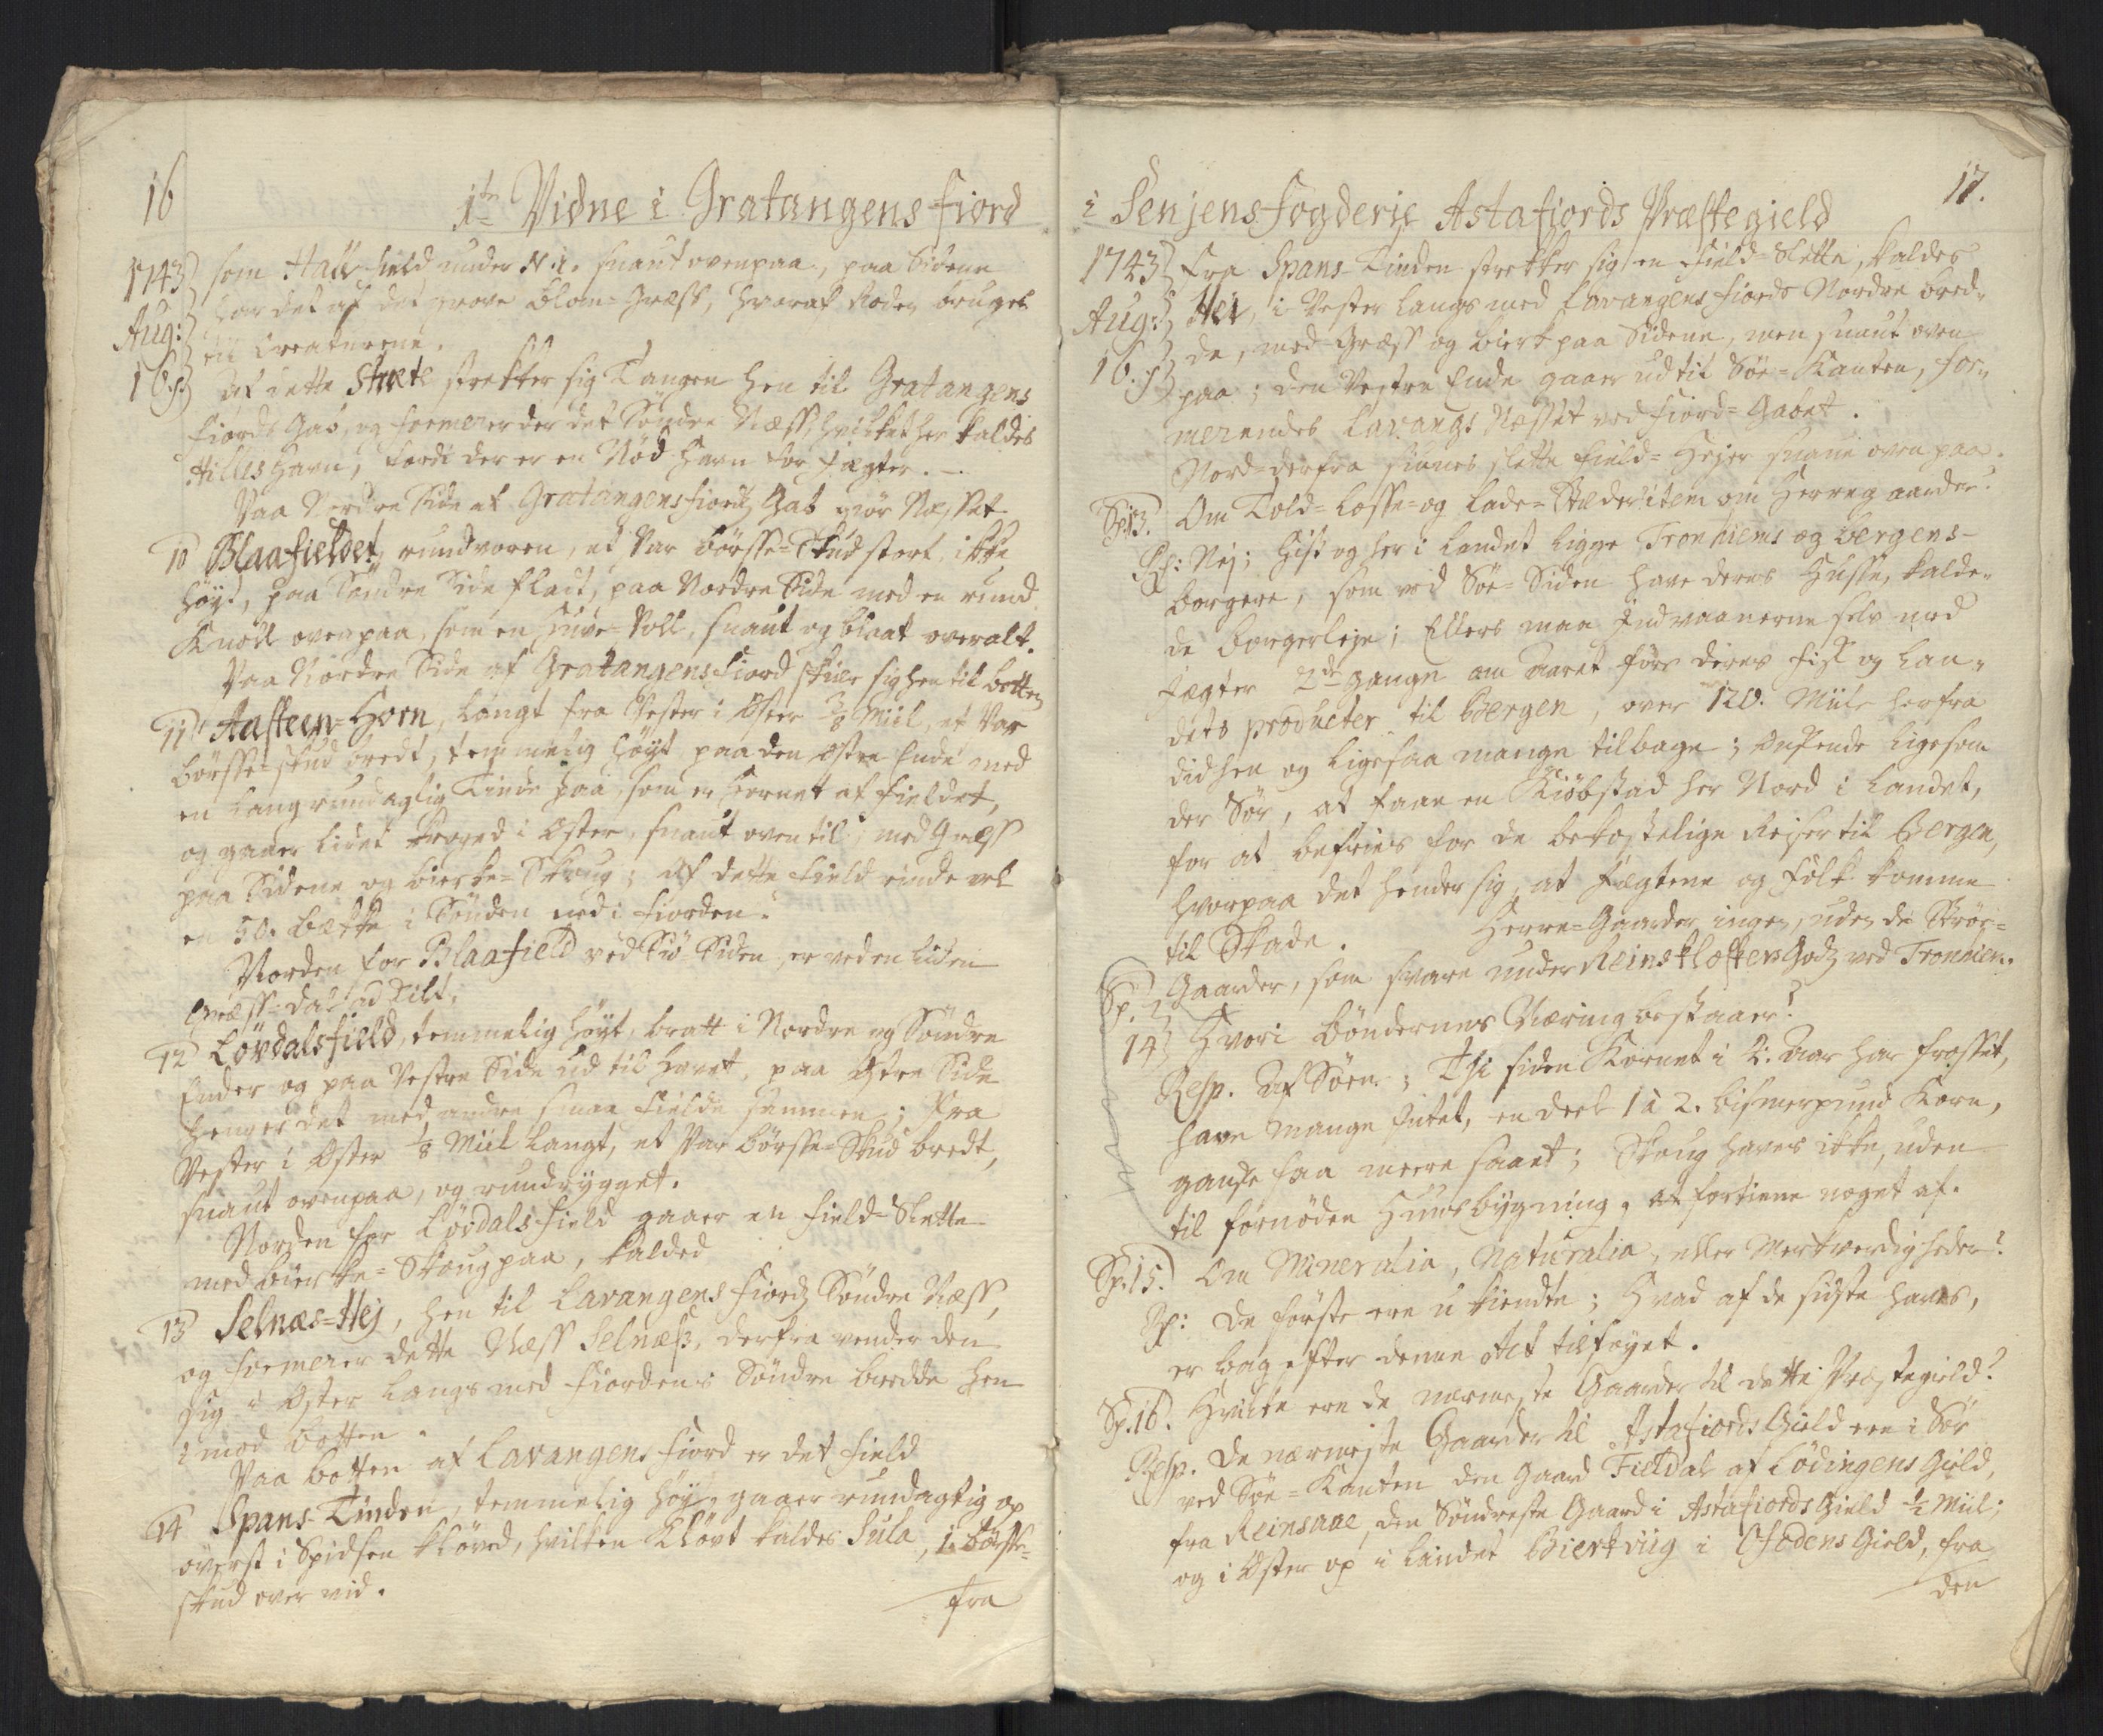 16
1te Vidne i Gratangens Fiord
1743 som Hall-field under N. 1. snaut ovenpaa, paa Sidene
Aug: har det af det grove Blom-Græss, hvoraf Roden bruges
16. til Creaturene.
Af dette Stræte strekker sig Tangen hen til Gratangens
Fiords Gab, og formerer der det Søndre Næss, hvilket her kaldes
Hilles Havn, fordi der er en Nød-Havn for Jægter.
Paa Nordre Side af Gratangens fiords Gab giør Næsset
10 Blaafieldet, rundvoren, et Par Børsse-Skud stort, ikke
høyt, paa Søndre Side fladt, paa Nordre Side med en rund
Knoll ovenpaa, som en Hue-Poll, snaut og blaat overalt.
Paa Nordre Side af Gratangens Fiord skiær sig hen til Botten
11 Aasteen-Horn, langt fra Vester i Øster 3/8 Miil, et Par
Børsse-skud bredt, temmelig høyt paa den Østre Ende med
en lang rundagtig Tinde paa, som er Hornet af Fieldet,
og gaaer lidet kroged i Øster, snaut oven til, med Græss
paa Sidene og Birke-Skoug; Af dette Field rinde vel
en 50. Bække i Sønden ned i Fiorden.
Norden for Blaafield ved Siø-Siden, er ved en liden
Græss-dal ad skilt,
12 Løvdalsfield, temmelig høyt, bratt i Nordre og Søndre
Ender og paa Vestre Side ud til Havet, paa Østre Side
henger det med andre smaa Fielde sammen; Fra
Vester i Øster 1/8 Miil langt, et Par Børsse-Skud bredt,
snaut ovenpaa, og rundrygget.
Norden for Løvdalsfield gaaer en Field-Slette
med Birke-Skoug paa, kalded
13 Selnæs-Hej, hen til Lavangens Fiords Søndre Næss,
og formerer dette Næss Selnæss, derfra vender den
sig i Øster langs med Fiordens Søndre Bredde hen
imod Botten.
Paa Botten af Lavangens Fiord er det Field
14 Spans-Tinden, temmelig høyt, gaaer rundagtig op
øverst i Spidsen kløved, hvilken Kløvt kaldes Sula, 1. Børsse-
skud over vid.
Fra
17.
i Senjens Fogderie Astafjords Præstegield
1743 Fra Spans-Tinden strekker sig en Field-Slette, kaldes
Aug: Hei, i Vester langs med Lavangens Fiords Nordre Bred-
16. de, med Græss og Birk paa Sidene, men snaut oven
paa; den Vestre Ende gaaer ud til Søe-Kanten, for-
merendes Lavangs Næsset ved Fiord-Gabet.
Nord-derfra siunes slette Field-Hejer snaue ovenpaa.
Sp: 13. Om Told-Losse- og Lade-Stæder item om Herregaarder?
Rs: Nej; Hist og her i Landet ligge Tronhiems og Bergens-
Borgere, som ved Søe-Siden have deres Husse, kalde-
de Borgerleje; Ellers maa Indvaanerne selv med
Jægter 2de gange om Aaret føre deres Fisk og Lan-
dets producter til Bergen, over 120. Miile herfra
didhen og ligesaa mange tilbage; Ønskende ligesom
der Sør, at faae en Kiøbstad her Nord i Landet,
for at befries for de bekostelige Rejser til Bergen,
hvorpaa det hender sig, at Jægtene og Folk komme
til Skade. Herre-Gaarder ingen, uden de Strøe-
Gaarder, som svare under Reinsklosters Godz ved Tronhiem.
Sp. 14 Hvori Bøndernes Næring bestaaer?
Resp. Af Søen; Thi siden Kornet i 2. Aar har frosset,
have mange intet, en deel 1 à 2. Bismerpund Korn,
ganske faa meere saaet; Skoug haves ikke, uden
til fornøden Huusbygning, at fortiene noget af.
Sp. 15. Om Mineralia, Naturalia, eller Merkverdigheder?
Rs: De første ere ukiendte; Hvad af de sidste haves,
er bag efter denne Act tilføyet.
Sp. 16. Hvilke ere de nærmeste Gaarder til dette Præstegield?
Resp. De nærmeste Gaarder til Astafiords Gield ere i Sør
ved Søe-Kanten den Gaard Fieldal af Lødingens Gield,
fra Reinsaae, den Søndreste Gaard i Astafiords Gield 1/2 Miil;
og i Øster op i Landet Bierkviig i Ofodens Gield, fra
den